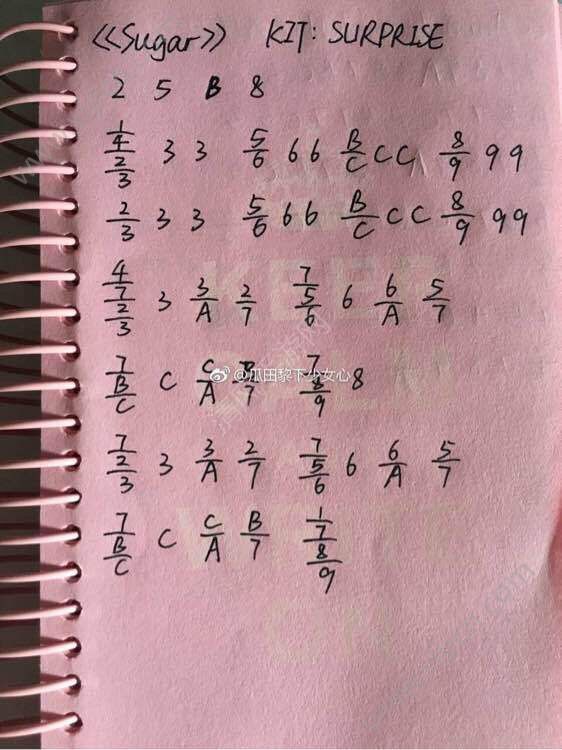 《Sugar》 KIT: SURPRISE
2 5 B 8
1/4/2/3 3 3 5/6 6 6 B/C C C 8/9 9 9
2/3 3 3 5/6 6 6 B/C C C 8/9 9 9
4/7/2/3 3 3/A 2/7 7/5/6 6 6/A 5/7
7/B/C C C/A B/7 7/8/9 8
@瓜田黎下少女心
7/2/3 3 3/A 2/7 7/5/6 6 6/A 5/7
7/B/C C C/A B/7 1/7/8/9